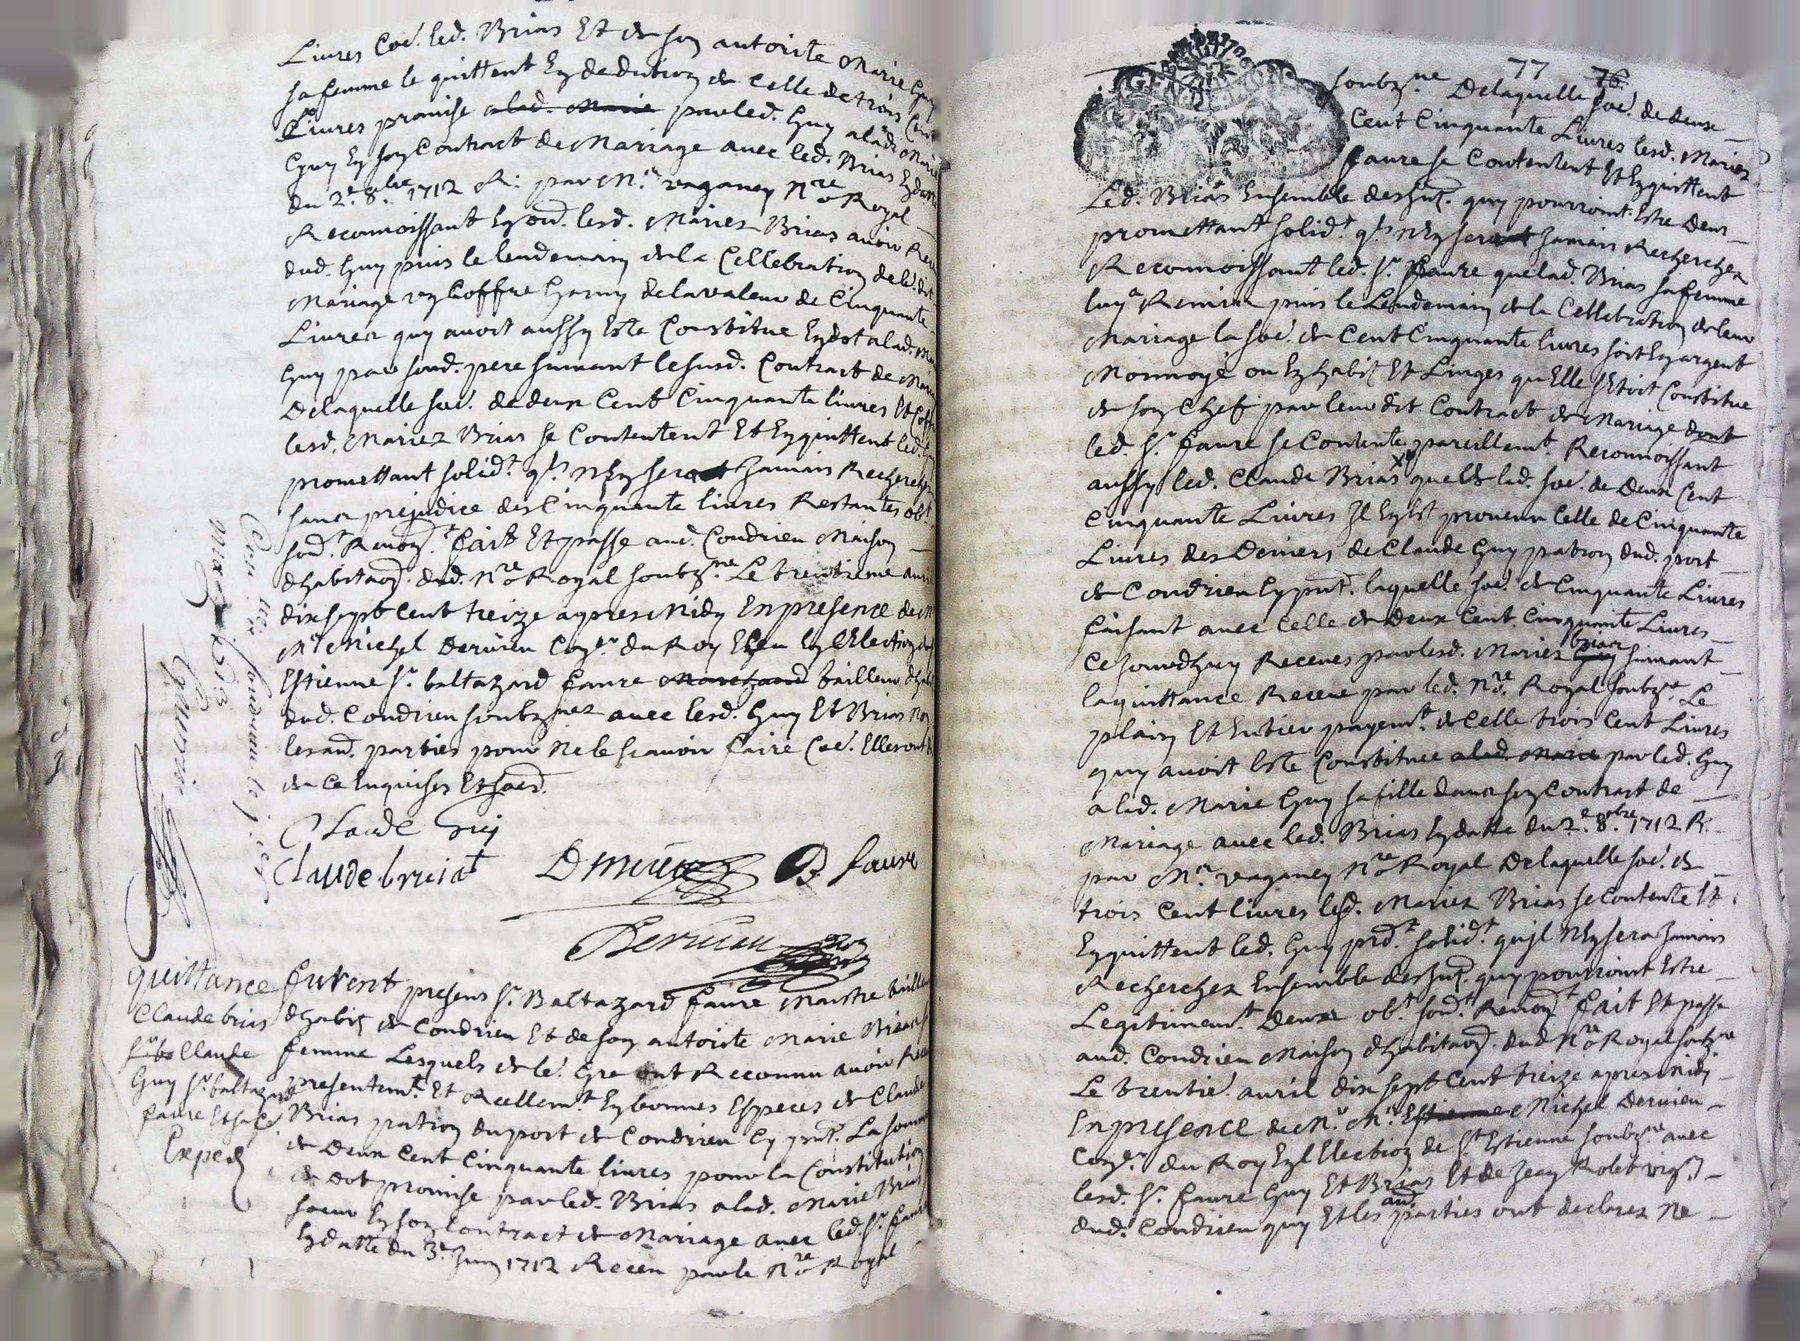 Livres Coe. led. Brias Et de son autorite Marie Guy
sa femme le quittent En deduction de Celle de trois Cent
Livres promise alad. Marie par led. Guy alad. Marie
Guy En son Contract de Mariage avec led. Brias En datte
du 2e. 8bre 1712 R. par Me. vaganey Nre Royal
Reconnoissant En oud. lesd. Mariez Brias avoir Receu
dud. Guy puis le lendemain de la Cellebration de led. dit
Mariage un Coffre Garny de la valeur de Cinquante
Livres quy avoit aussy Este Constitue En dot alad. Marie
Guy par sond. pere suivant le susd. Contract de Mariage
De laquelle soe. de deux Cent Cinquante livres Et Coffre
lesd. Mariez Brias se Contentent Et En quittent led. Guy
promettant solidt. qls. n'En serat Jamais Rechercher
sans prejudice des Cinquante livres Restantes obt.
sond. Renont. fait Et passe aud. Condrieu Maison
d'habitaon. dud. Nre Royal soubzne Le trentieme avril
dix sept Cent treize apres Midy En presence de M
Me Michel Dervieu Coner. du Roy Esleu En l'Election de
Estienne Sr. baltazard faure Marchand bailleur d'hab
dud. Condrieu soubznez avec lesd. Guy Et Brias Non
lesaud. parties pour ne le scavoir faire Coe. Elles ont
de Ce Enquises Et soed.
Claude Guy
Claude. briat Dervieu B faure
Dervieu
Con.le a Condrieu le
quittance
Claude brias
Claude
Guy Sr. baltazard
faure Et sa fe
Exped
furent presens Sr. Baltazard faure Maistre bailleur
d'habit de Condrieu Et de son autorite Marie Brias sa
femme Lesquels de le. Gre ont Reconnu avoir Receu
presentemt. Et Reellemt. En bonnes Especes de Claude
Brias patron du port de Condrieu Cy pnt. La somme
de Deux Cent Cinquante livres pour la Constitution
de Dot promise par led. Brias alad. Marie Brias
soeur En son Contract de Mariage avec led. Sr. faure
En datte du 3e. Juin 1712 Receu par le Nre Royal
77 76
soubzne De laquelle soe. de deux
Cent Cinquante Livres lesd. Mariez
faure se Contentent Et En quittent
Led. Brias Ensemble des Intt. quy pourroint Estre Deus
promettant solidt. qls. n'En serat Jamais Rechercher
Reconnoissant led. Sr. faure que lad. Brias sa femme
luy a Remise puis le Lendemain de la Cellebration de leur
Mariage la soe. de Cent Cinquante livres soit En argent
Monnoye ou En habit Et Linges qu'Elle s'Etoit Constitue
de son Chef par leur dit Contract de Mariage dont
led. Sr. faure se Contente pareillemt. Reconnoissant
aussy led. Claude Brias que de lad. soe. de Deux Cent
Cinquante Livres Il En Est provenu Celle de Cinquante
Livres des Deniers de Claude Guy patron dud. port
de Condrieu Cy pnt. laquelle soe. de Cinquante Livres
faisant avec Celle de Deux Cent Cinquante Livres
Cejourdhuy Receues par lesd. Mariez Guy brias suivant
la quittance Receue par led. Nre. Royal soubzne. Le
plain Et Entier payemt. de Celle trois Cent Livres
quy avoit Este Constituee alad. Marie par led. Guy
a lad. Marie Guy sa fille dans son Contract de
Mariage avec led. Brias En datte du 2e. 8bre. 1712 R.
par Me. vaganey Nre Royal De laquelle soe. de
trois Cent livres led. Mariez Brias se Contente Et
En quittent led. Guy prd.t solidt. qu'jl N'En sera Jamais
Rechercher Ensemble des Intt. quy pourroint Estre
Legitimemt. Deuxe obt. sond.t Renont. fait Et passe
aud. Condrieu Maison d'habitaon. dud Nre Royal soubzne
Le trentie. avril dix sept Cent treize apres Midy
En presence de Mr. Me. Estienne Michel Dervieu
Coner. du Roy En l'Election de St Estienne soubzne avec
lesd. Sr. faure Guy Et Brias Et de Jean Rolet vign
dud. Condrieu quy Et les aud. parties ont declarez Ne